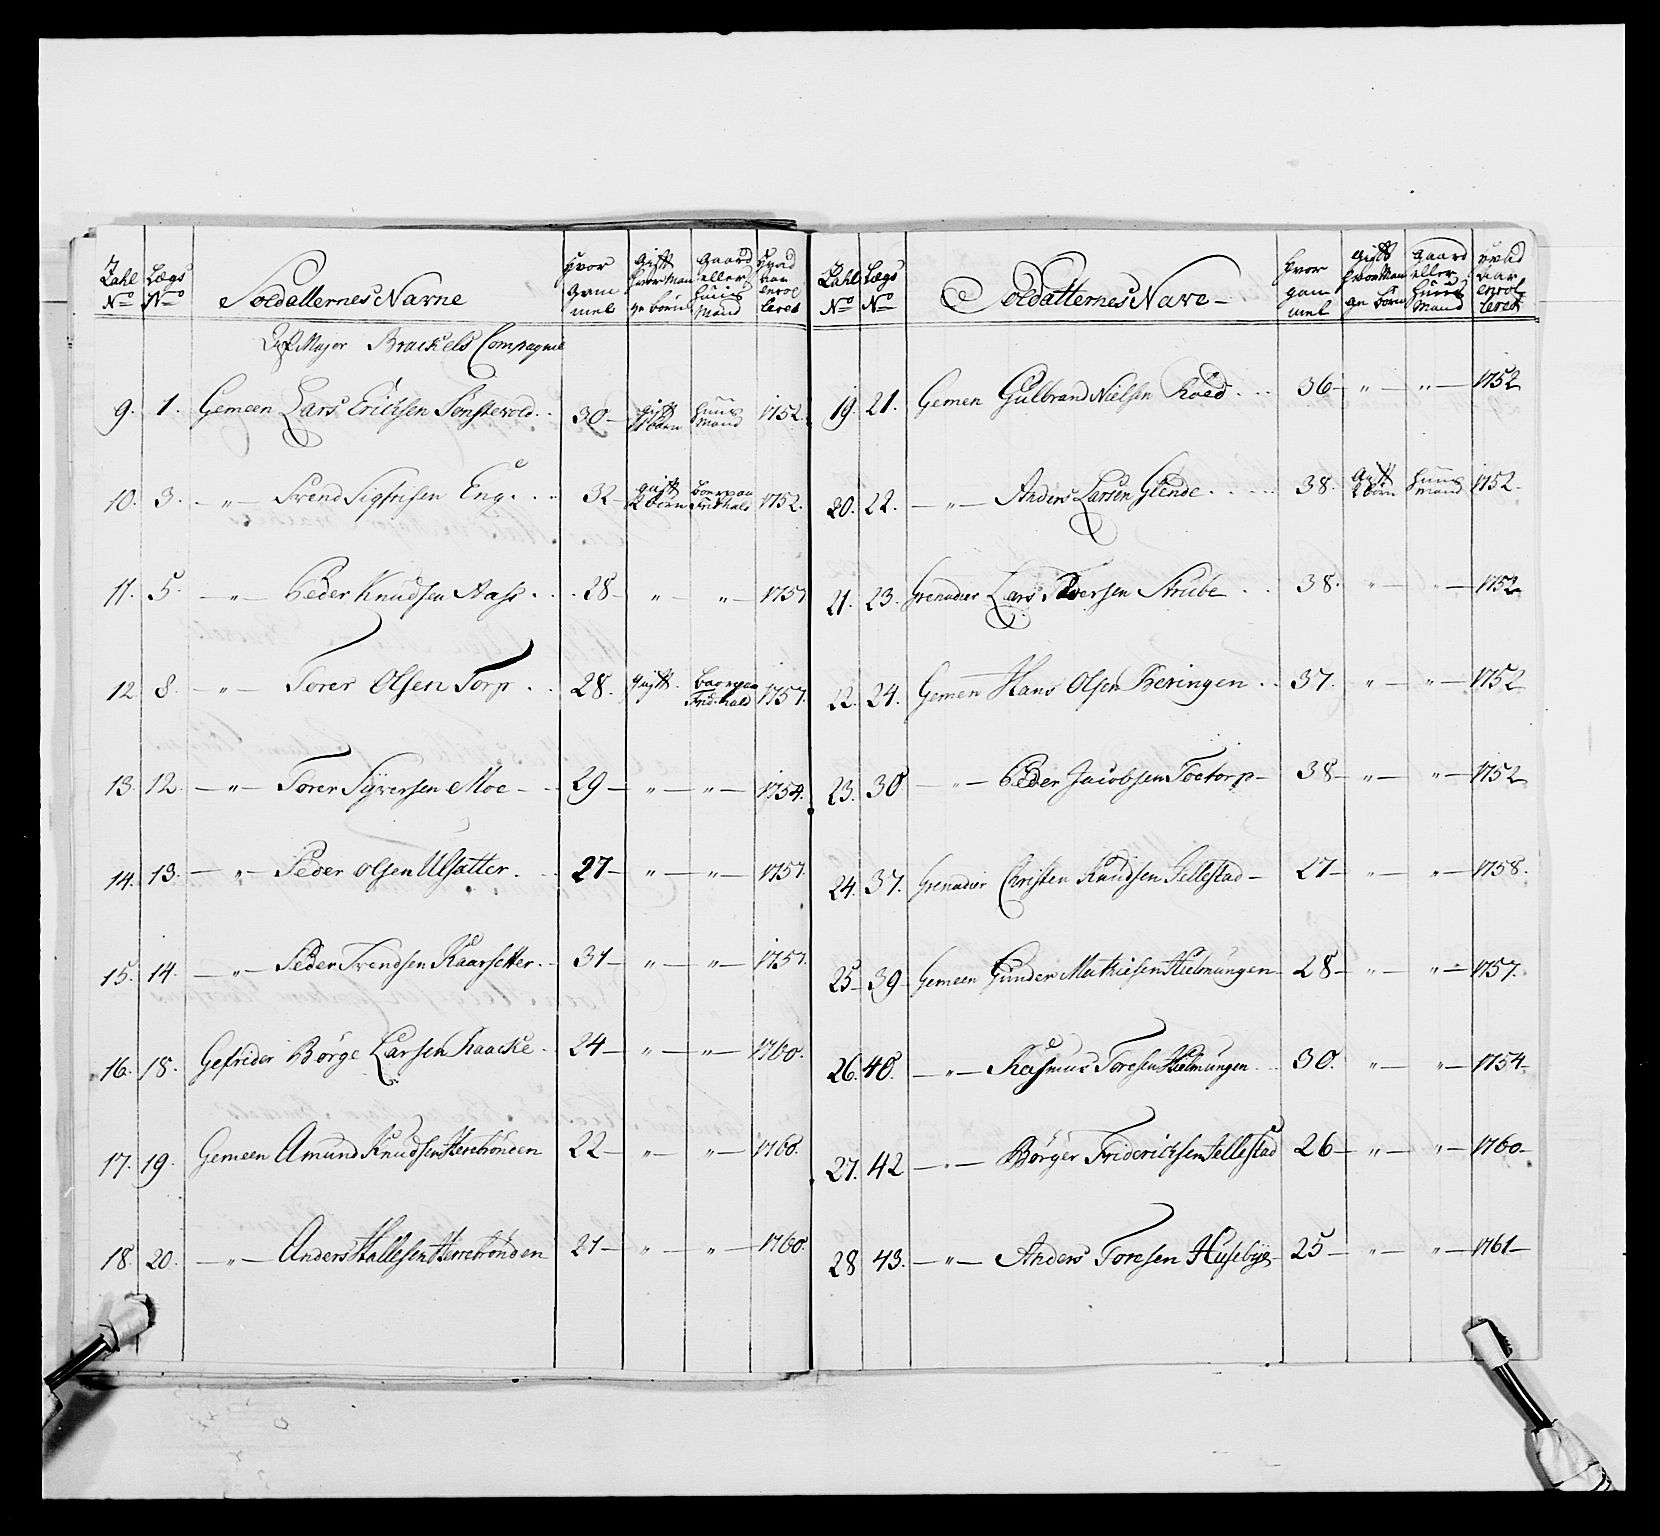 Zahl No Lægs No Soldatternes Navne Hvor Gammel Gift hvor Mange børn Gaard eller Huus Mand Hvad aar enrolleret
Major Brackels Compagnie
9. 1. Gemeen Lars Ericksen Tonstevold 30 gift 1 barn Huus Mand 1752.
10. 3. — " — Svend Sigfrisen Eng 32 gift 2 børn Boer paa Fridhald 1752.
11. 5. — " — Peder Knudsen Aase 28 — " — " — 1757
12. 8. — " — Torer Olsen Torp 28. gift Boer paa Frid.hald 1757.
13. 12. — " — Torer Syversen Moe 29 — " — " — 1754.
14. 13. — " — Peder Olsen Ulsætter 27 — " — " — 1757
15. 14. — " — Peder Svendsen Kaarsetter 31 — " — " — 1757.
16. 18. Gefrider Børge Larsen Kaacke 24 — " — " — 1760.
17. 19. Gemeen Amund Knudsen Herrebrønden 22 — " — " — 1760.
18. 20. — " — Anders Hallesen Herrebrønden 21 — " — " — 1760.
Zahl No Lægs No Soldatternes Nave Hvor gammel Gift hvor Mange børn Gaard eller Huus Mand Hvad aar enrolleret
19. 21. Gemen Gulbrand Nielsen Roed 36 — " — " — 1752
20. 22. — " — Anders Larsen Glende 38. Gift 2 børn Huus mand 1752.
21. 23. Grenadier Lars Iversen Strube 38. " — " — 1752
22. 24. Gemen Hans Olsen Beringen 37. " — " — 1752
23. 30 — " — Peder Jacobsen Toetorp 38 — " — " — 1752
24. 37. Grenadier Christen Knudsen Jellestad 27 — " — " — 1758.
25 39 Gemeen Gunder Mathiesen Hielmungen 28 — " — " — 1757.
26. 40. — " — Rasmus Toresen Hielmungen 30. " — " — 1754
27. 42 — " — Børger Fridericksen Jellestad 26 — " — " — 1760
28 43. — " — Anders Toresen Husebÿe 25 — " — " — 1761